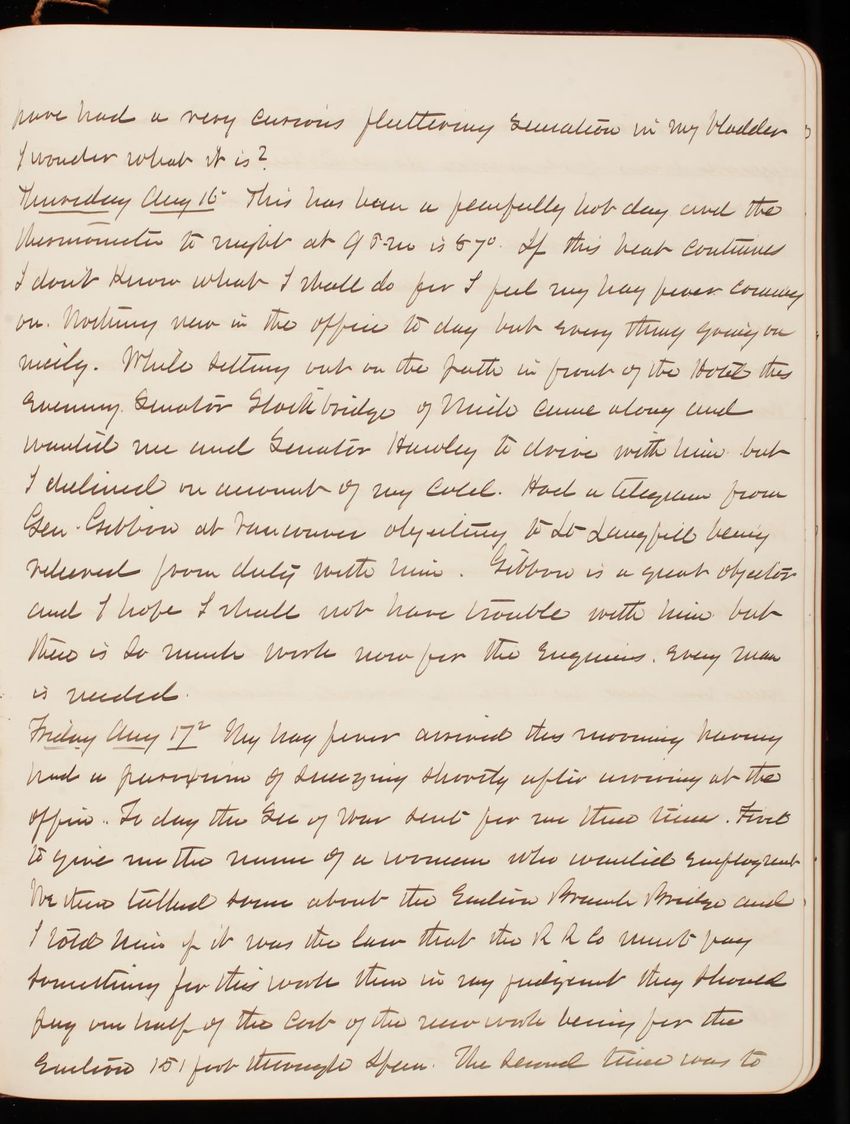 have had a very curious fluttering sensation in my bladder
I wonder what it is?
Thursday Aug 16" This has been a fearfully hot day and the
thermometer to night at 9 P-m is 87°. If this heat continues
I don't know what I shall do for I feel my hay fever coming
on. Nothing new in the office to day but every thing going on
nicely. While sitting out on the path in front of the Hotel this
evening. Senator Stockbridge of Mich came along and
wanted me and Senator Hawley to drive with him but
I declined on account of my cold. Had a telegram from
Gen. Gibbon at Vancouver objecting to Lt Langfitt being
relieved from duty with him. Gibbon is a great objector
and I hope I shall not have trouble with him but
there is so much work now for the Engineers. Every man
is needed.
Friday Aug 17" My hay fever arrived this morning having
had a paroxism of sneezing shortly after arriving at the
office. To day the Sec of War sent for me three times. First
to give me the name of a woman who wanted employment
We then talked some about the Eastern Branch Bridge and
I told him if it was the law that the R R Co must pay
something for this work then in my judgment they should
pay one half of the cost of the new work being for the
entire 151 foot through span. The second time was to